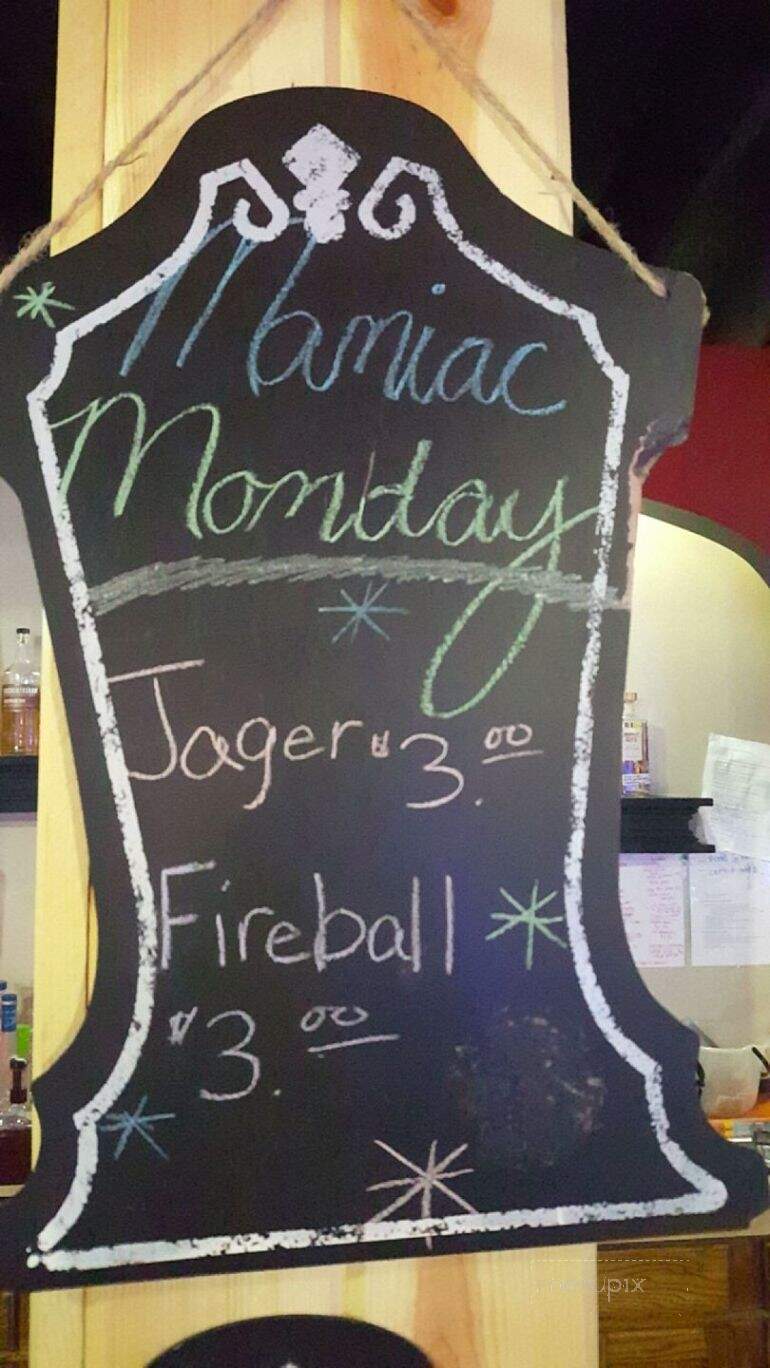 Maniac
Monday
Jager $3.00
Fireball
$3.00